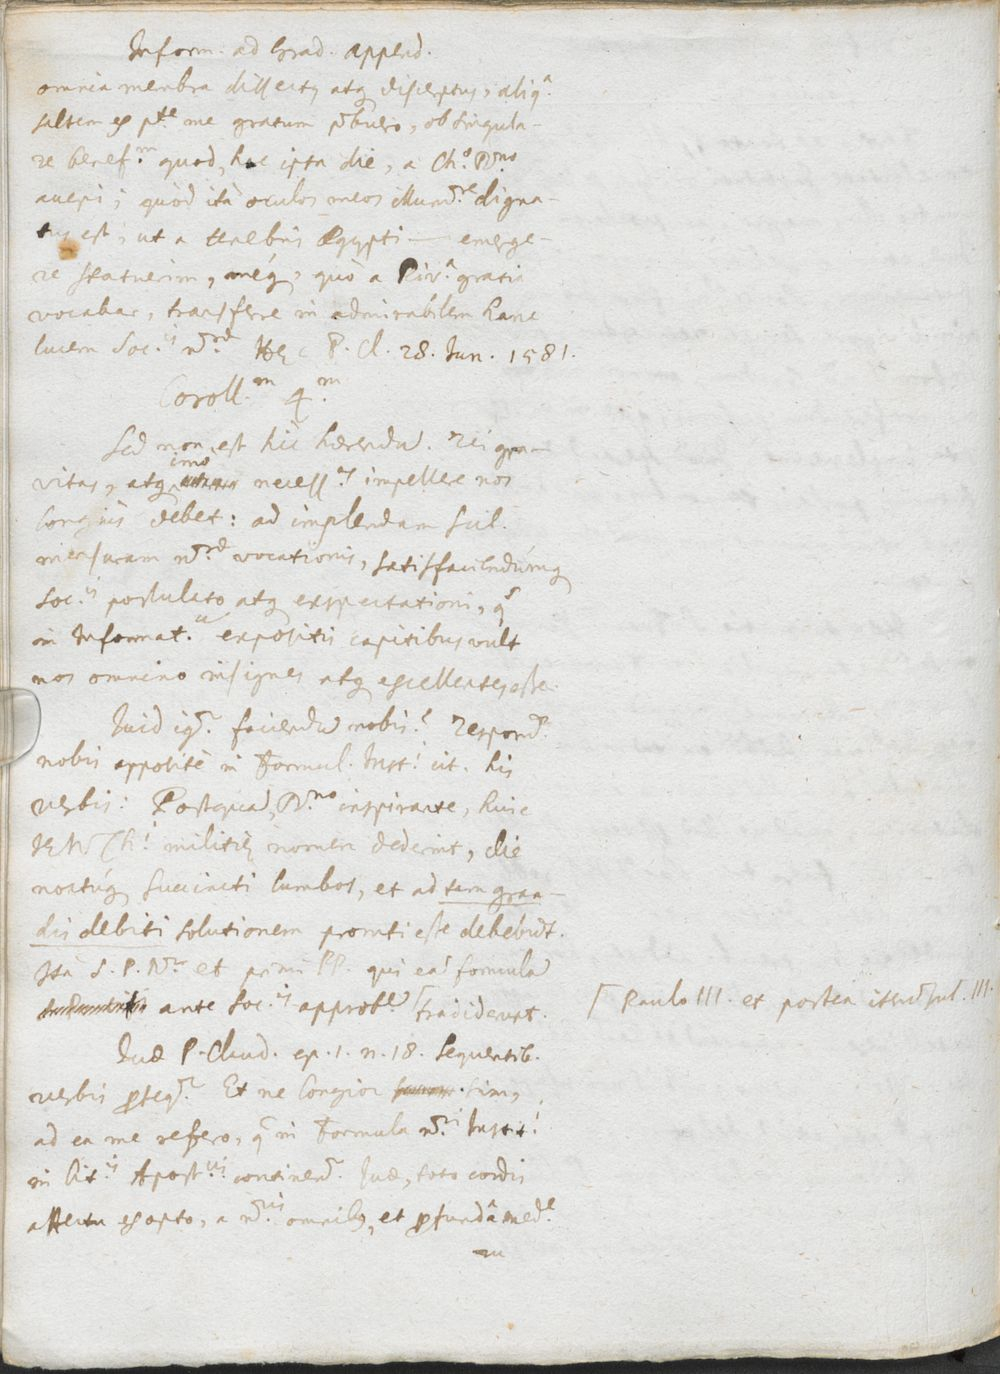 Inform. ad Grad. Append.
omnia membra dissectus atq discerptus, aliq.a
saltem ex p.te me gratum p̃buero, ob singula-
re benef.m quod, hac ipsa die, a Ch.o D.no
accepi; quòd ità oculos meos illum.re digna-
tus est, ut a tenebris Ægypti — emerge-
re statuerim, méq, quò a Div.a gratia
vocabar, transferre in admirabilem hanc
lucem Soc.is nr̃æ. Hęc P. Cl. 28. Jun. 1581.
Coroll.m 4.m
Sed non est hic hærendũ. rei gra-
vitas, atq imo necess.s impellere nos
longiùs debet: ad implendam scil.
mensuram nr̃æ vocationis, satisfaciendúmq
Soc.is postulato atq exspectationi, q̃
in Informat. expositis capitibus vult
nos omnino insignes atq excellentes esse.
Quid ig.r faciendũ nobis? respond.
nobis appositè in Formul. Inst.i cit. his
verbis: Postquã, D.no inspirante, huic
JESU Ch.i militiæ nomen dederint, die
noctúq succincti lumbos, et ad tam gran-
dis debiti solutionem promti esse debebũt.
Ità S. P. N.r et primi PP. qui eã formulã
ante Soc.is approb.ẽ [ tradiderunt.
[ Paulo III. et postea iterũ Jul. III.
Quæ P. Claud. ep. 1. n. 18. sequentib.
verbis p̃seq.r Et ne longior sim,
ad ea me refero, q̃ in Formula nr̃i Inst.i
in Lit.is Apost.cis continen.r Quæ, toto cordis
affectu exopto, a nr̃is omnib, et p̃fundâ med.e